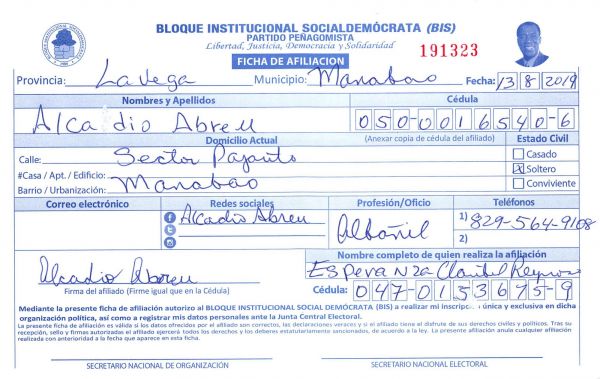 BLOQUE INSTITUCIONAL SOCIALDEMÓCRATA (BIS)
PARTIDO PEÑAGOMISTA
Libertad, Justicia, Democracia y Solidaridad
191323
FICHA DE AFILIACION
Provincia: La Vega Municipio: Manabao Fecha: 13/8/2019
Nombres y Apellidos Cédula
Alcadio Abreu 050-0016540-6
Domicilio Actual (Anexar copia de cédula del afiliado) Estado Civil
Calle: Sector Pajarito Casado
#Casa / Apt. / Edificio: X Soltero
Barrio / Urbanización: Manabao Conviviente
Correo electrónico Redes sociales Profesión/Oficio Teléfonos
Alcadio Abreu Albañil 1) 829-564-9108
2)
Nombre completo de quien realiza la afiliación
Alcadio Abreu Esperanza Claribel Reynoso
Firma del afiliado (Firme igual que en la Cédula) Cédula: 047-0153675-9
Mediante la presente ficha de afiliación autorizo al BLOQUE INSTITUCIONAL SOCIAL DEMÓCRATA (BIS) a realizar mi inscripción única y exclusiva en dicha
organización política, así como a registrar mis datos personales ante la Junta Central Electoral.
La presente ficha de afiliación es válida si los datos ofrecidos por el afiliado son correctos, las declaraciones veraces y si el afiliado tiene el disfrute de sus derechos civiles y políticos. Tras su
recepción, sello y firmas autorizadas el afiliado ejercerá todos los derechos y los deberes estatutariamente sancionados, de acuerdo a la ley. La presente afiliación anula cualquier afiliación
realizada con anterioridad a la fecha que aparece en esta ficha.
SECRETARIO NACIONAL DE ORGANIZACIÓN SECRETARIO NACIONAL ELECTORAL